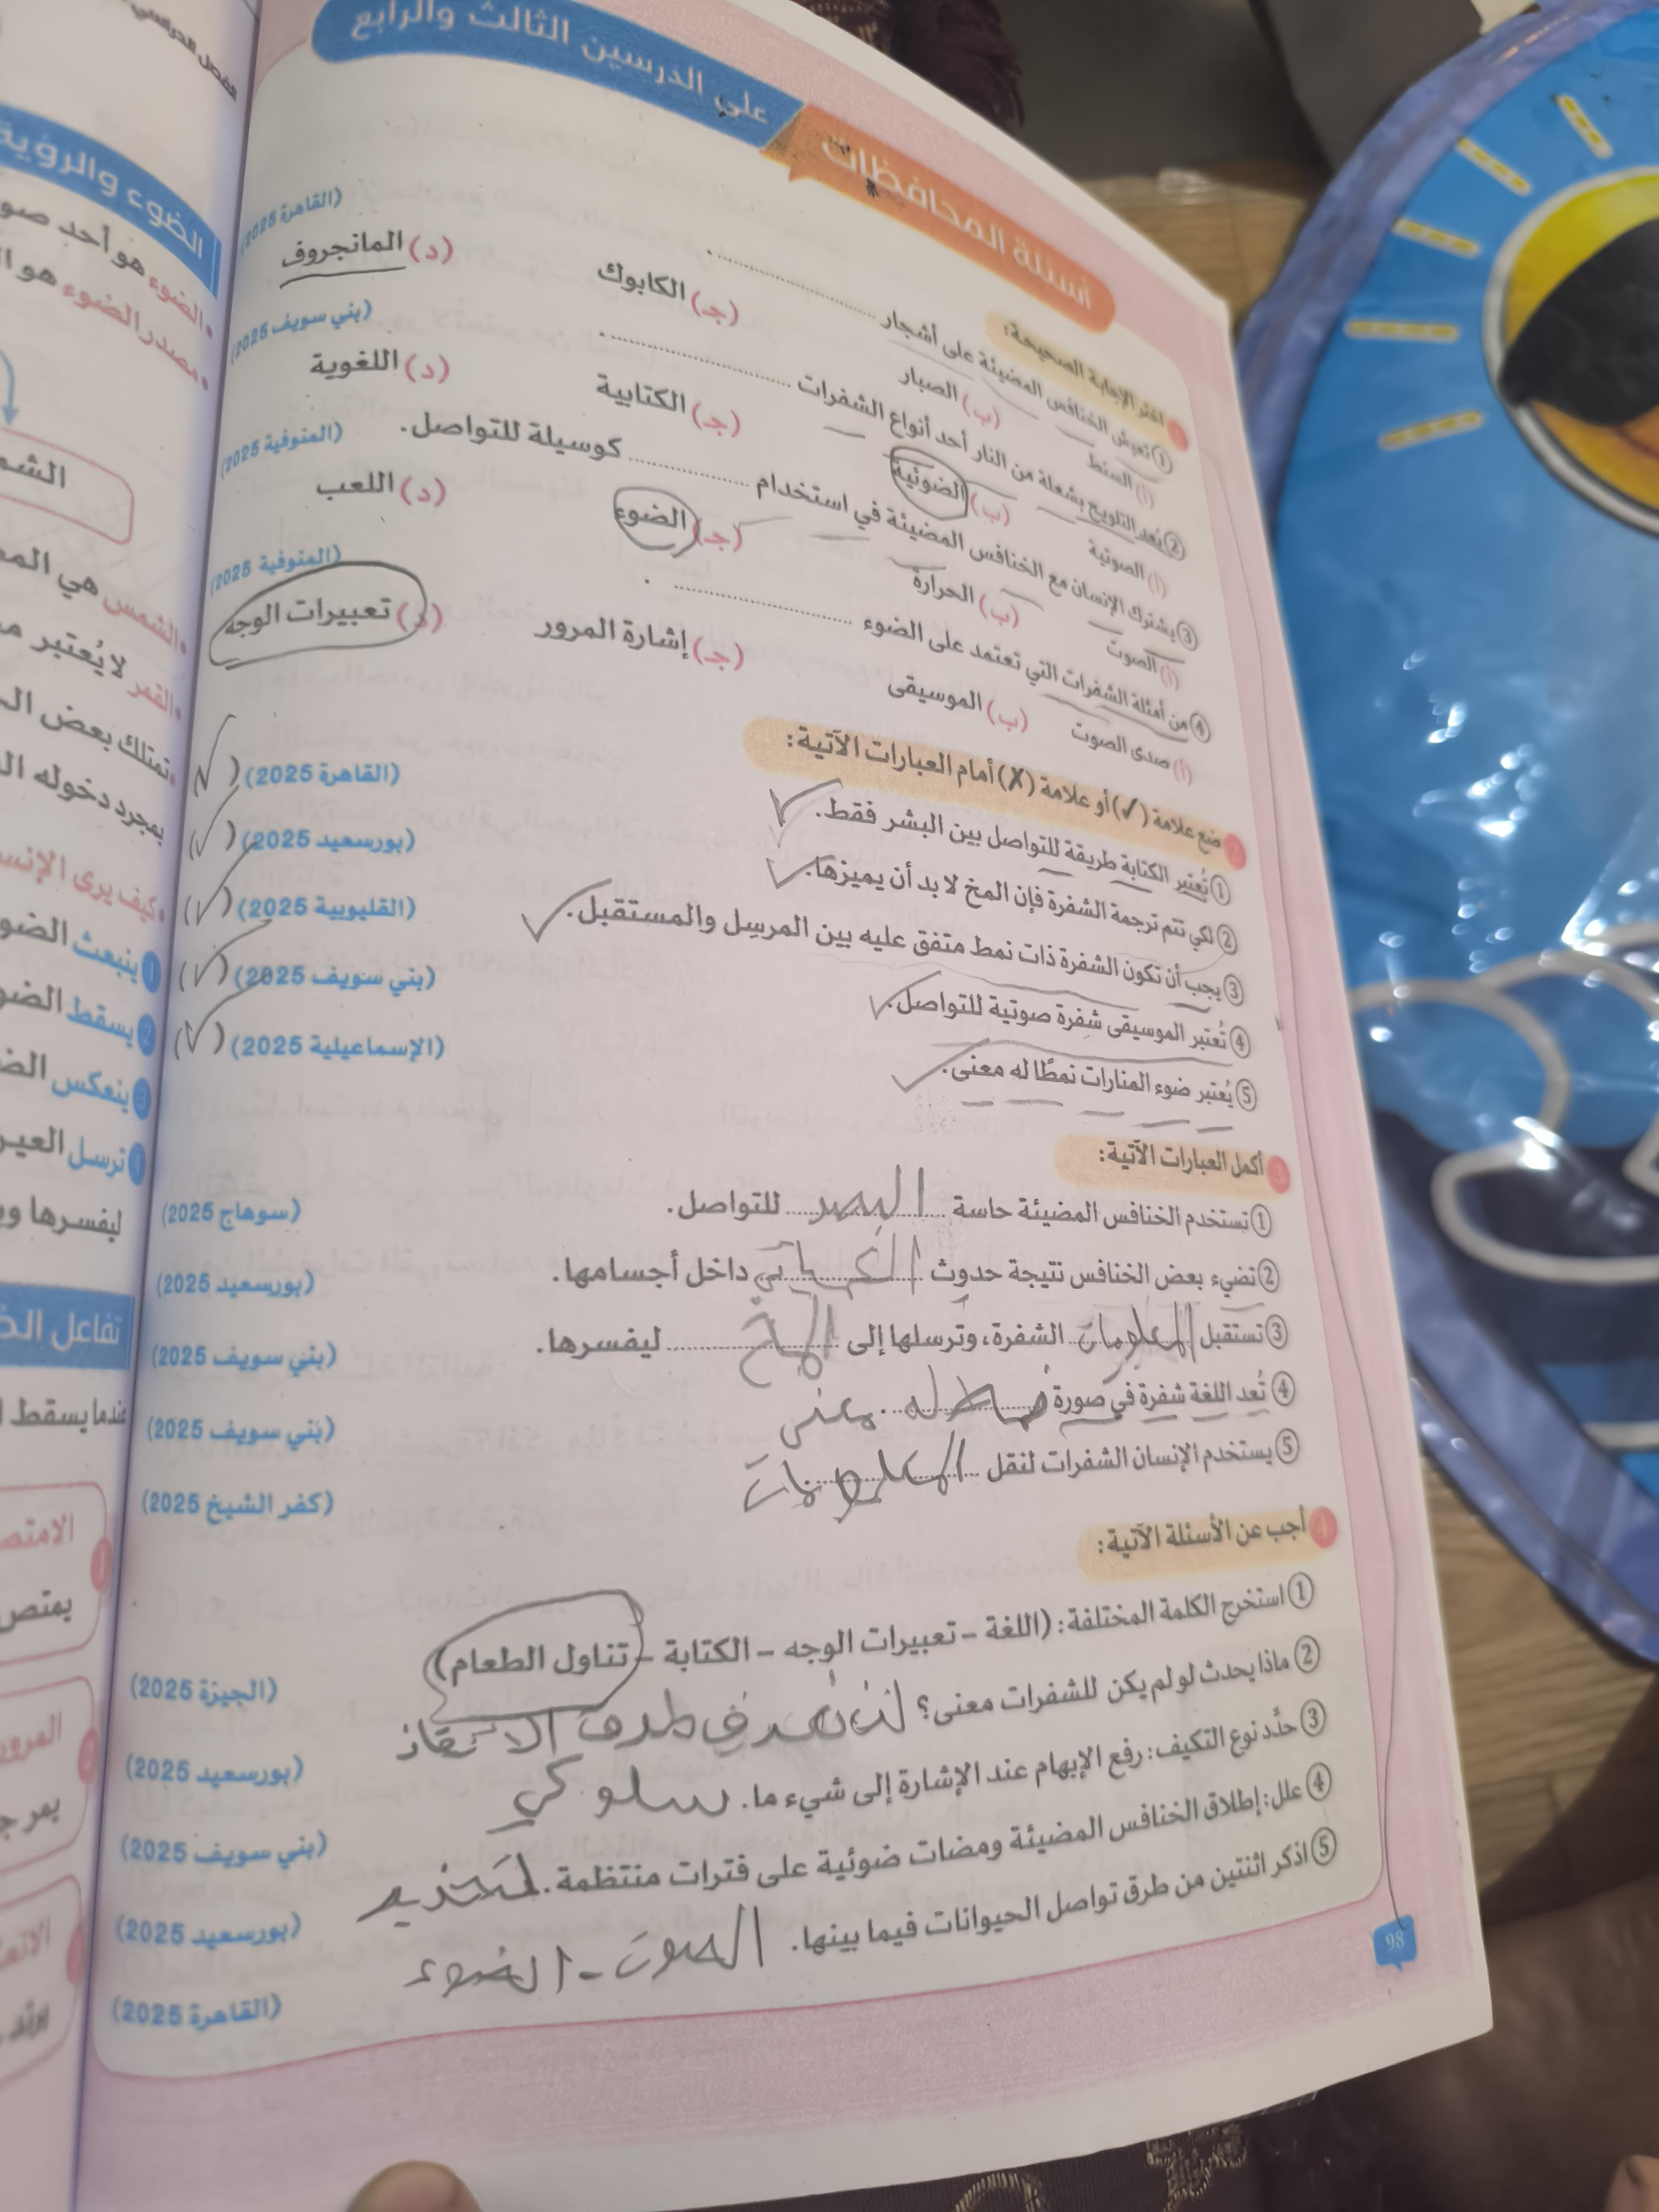 أسئلة المحافظات
على الدرسين الثالث والرابع
1 اختر الإجابة الصحيحة:
① تعيش الخنافس المضيئة على أشجار .................... . (القاهرة 2025)
(أ) السنط (ب) الصبار (جـ) الكابوك (د) المانجروف
② يُعد التلويح بشعلة من النار أحد أنواع الشفرات .................... . (بني سويف 2025)
(أ) الصوتية (ب) الضوئية (جـ) الكتابية (د) اللغوية
③ يشترك الإنسان مع الخنافس المضيئة في استخدام .................... كوسيلة للتواصل. (المنوفية 2025)
(أ) الصوت (ب) الحرارة (جـ) الضوء (د) اللعب
④ من أمثلة الشفرات التي تعتمد على الضوء .................... . (المنوفية 2025)
(أ) صدى الصوت (ب) الموسيقى (جـ) إشارة المرور (د) تعبيرات الوجه
2 ضع علامة (✓) أو علامة (✗) أمام العبارات الآتية:
① تُعتبر الكتابة طريقة للتواصل بين البشر فقط. ✓ (القاهرة 2025) (✓)
② لكي تتم ترجمة الشفرة فإن المخ لا بد أن يميزها. ✓ (بورسعيد 2025) (✓)
③ يجب أن تكون الشفرة ذات نمط متفق عليه بين المرسِل والمستقبل. ✓ (القليوبية 2025) (✓)
④ تُعتبر الموسيقى شفرة صوتية للتواصل. ✓ (بني سويف 2025) (✓)
⑤ يُعتبر ضوء المنارات نمطًا له معنى. ✓ (الإسماعيلية 2025) (✓)
3 أكمل العبارات الآتية:
① تستخدم الخنافس المضيئة حاسة البصر للتواصل. (سوهاج 2025)
② تضيء بعض الخنافس نتيجة حدوث داخل أجسامها. (بورسعيد 2025)
③ تستقبل المعلومات الشفرة، وترسلها إلى المخ ليفسرها. (بني سويف 2025)
④ تُعد اللغة شفرة في صورة له معنى. (بني سويف 2025)
⑤ يستخدم الإنسان الشفرات لنقل المعلومات (كفر الشيخ 2025)
4 أجب عن الأسئلة الآتية:
① استخرج الكلمة المختلفة: (اللغة – تعبيرات الوجه – الكتابة – تناول الطعام) (الجيزة 2025)
② ماذا يحدث لو لم يكن للشفرات معنى؟ لن نعرف طرق (بورسعيد 2025)
③ حدِّد نوع التكيف: رفع الإبهام عند الإشارة إلى شيء ما. سلوكي (بني سويف 2025)
④ علل: إطلاق الخنافس المضيئة ومضات ضوئية على فترات منتظمة. (بورسعيد 2025)
⑤ اذكر اثنتين من طرق تواصل الحيوانات فيما بينها. الصوت - الضوء (القاهرة 2025)
98
الضوء والرؤية
الضوء هو أحد
مصدر الضوء هو
الشمس هي
القمر لا يُعتبر
تمتلك بعض
بمجرد دخوله
كيف يرى
1 ينبعث
2 يسقط
3 ينعكس
4 ترسل
ليفسرها
عندما يسقط